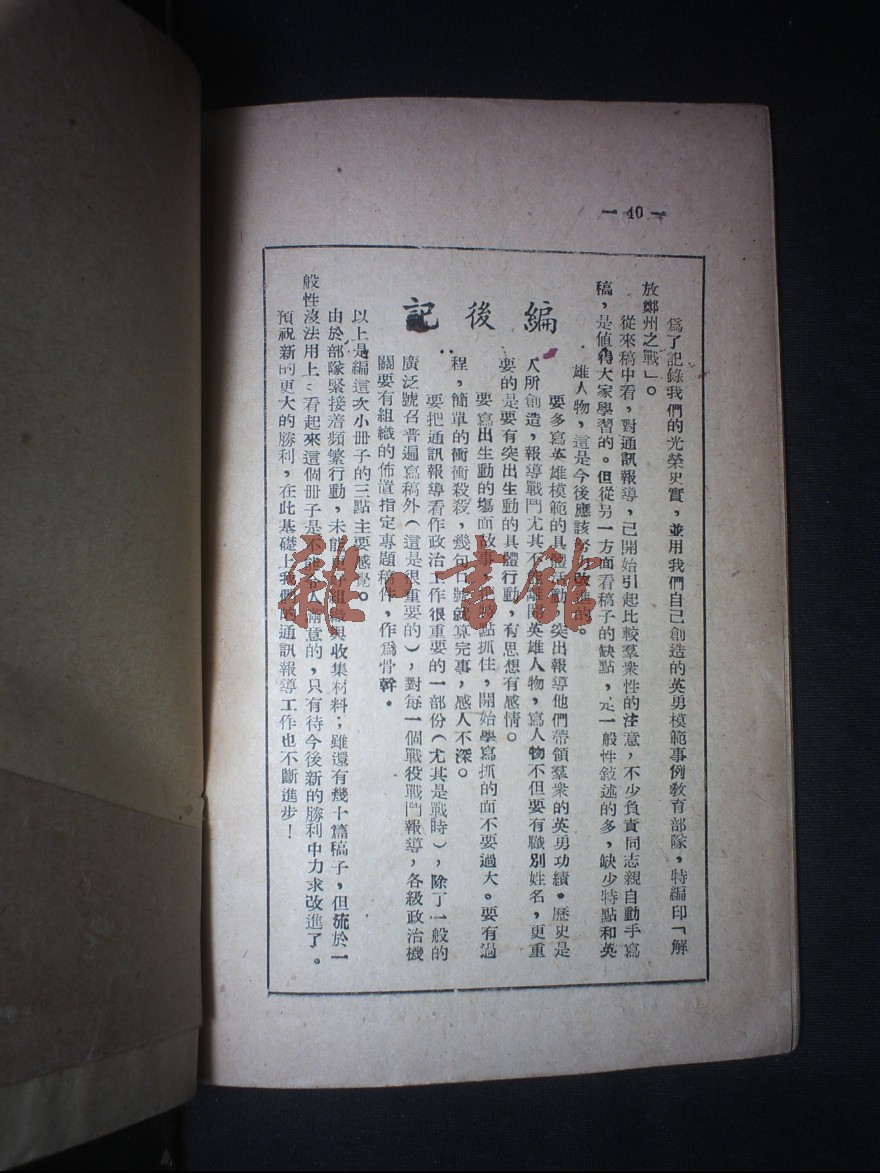 — 40 —
編後記
為了記錄我們的光榮史實，並用我們自己創造的英勇模範事例教育部隊，特編印「解
放鄭州之戰」。
從來稿中看，對通訊報導，已開始引起比較羣衆性的注意，不少負責同志親自動手寫
稿，是值得大家學習的。但從另一方面看稿子的缺點，是一般性敍述的多，缺少特點和英
雄人物，這是今後應該努力改進的。
要多寫英雄模範的具體活動，突出報導他們帶領羣衆的英勇功績。歷史是
人所創造，報導戰鬥尤其不能離開英雄人物，寫人物不但要有職別姓名，更重
要的是要有突出生動的具體行動，有思想有感情。
要寫出生動的塲面故事，把特點抓住，開始學寫抓的面不要過大。要有過
程，簡單的衝衝殺殺，幾句口號就算完事，感人不深。
要把通訊報導看作政治工作很重要的一部份（尤其是戰時），除了一般的
廣泛號召普遍寫稿外（這是很重要的），對每一個戰役戰鬥報導，各級政治機
關要有組織的佈置指定專題稿件，作為骨幹。
以上是編這次小册子的三點主要感覺。
由於部隊緊接着頻繁行動，未能組織與收集材料；雖還有幾十篇稿子，但流於一
般性沒法用上：看起來這個册子是不能令人滿意的，只有待今後新的勝利中力求改進了。
預祝新的更大的勝利，在此基礎上我們的通訊報導工作也不斷進步！
雜·書館